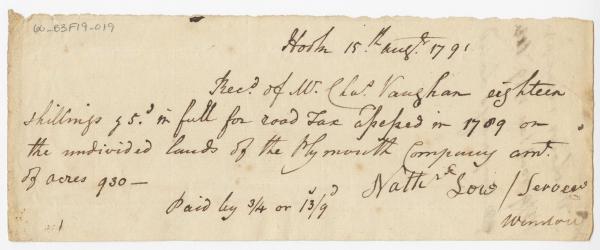 60-B3F19-019
Hook 15.th augt. 1791
Rec.d of Mr. Chas. Vaughan eighteen
shillings & 5.d in full for road Tax assessed in 1789 on
the undivided lands of the Plymouth Company amt.
of acres 930 —
Nath Low / Serveer
Paid by 3/4 or 13/9
Winslow